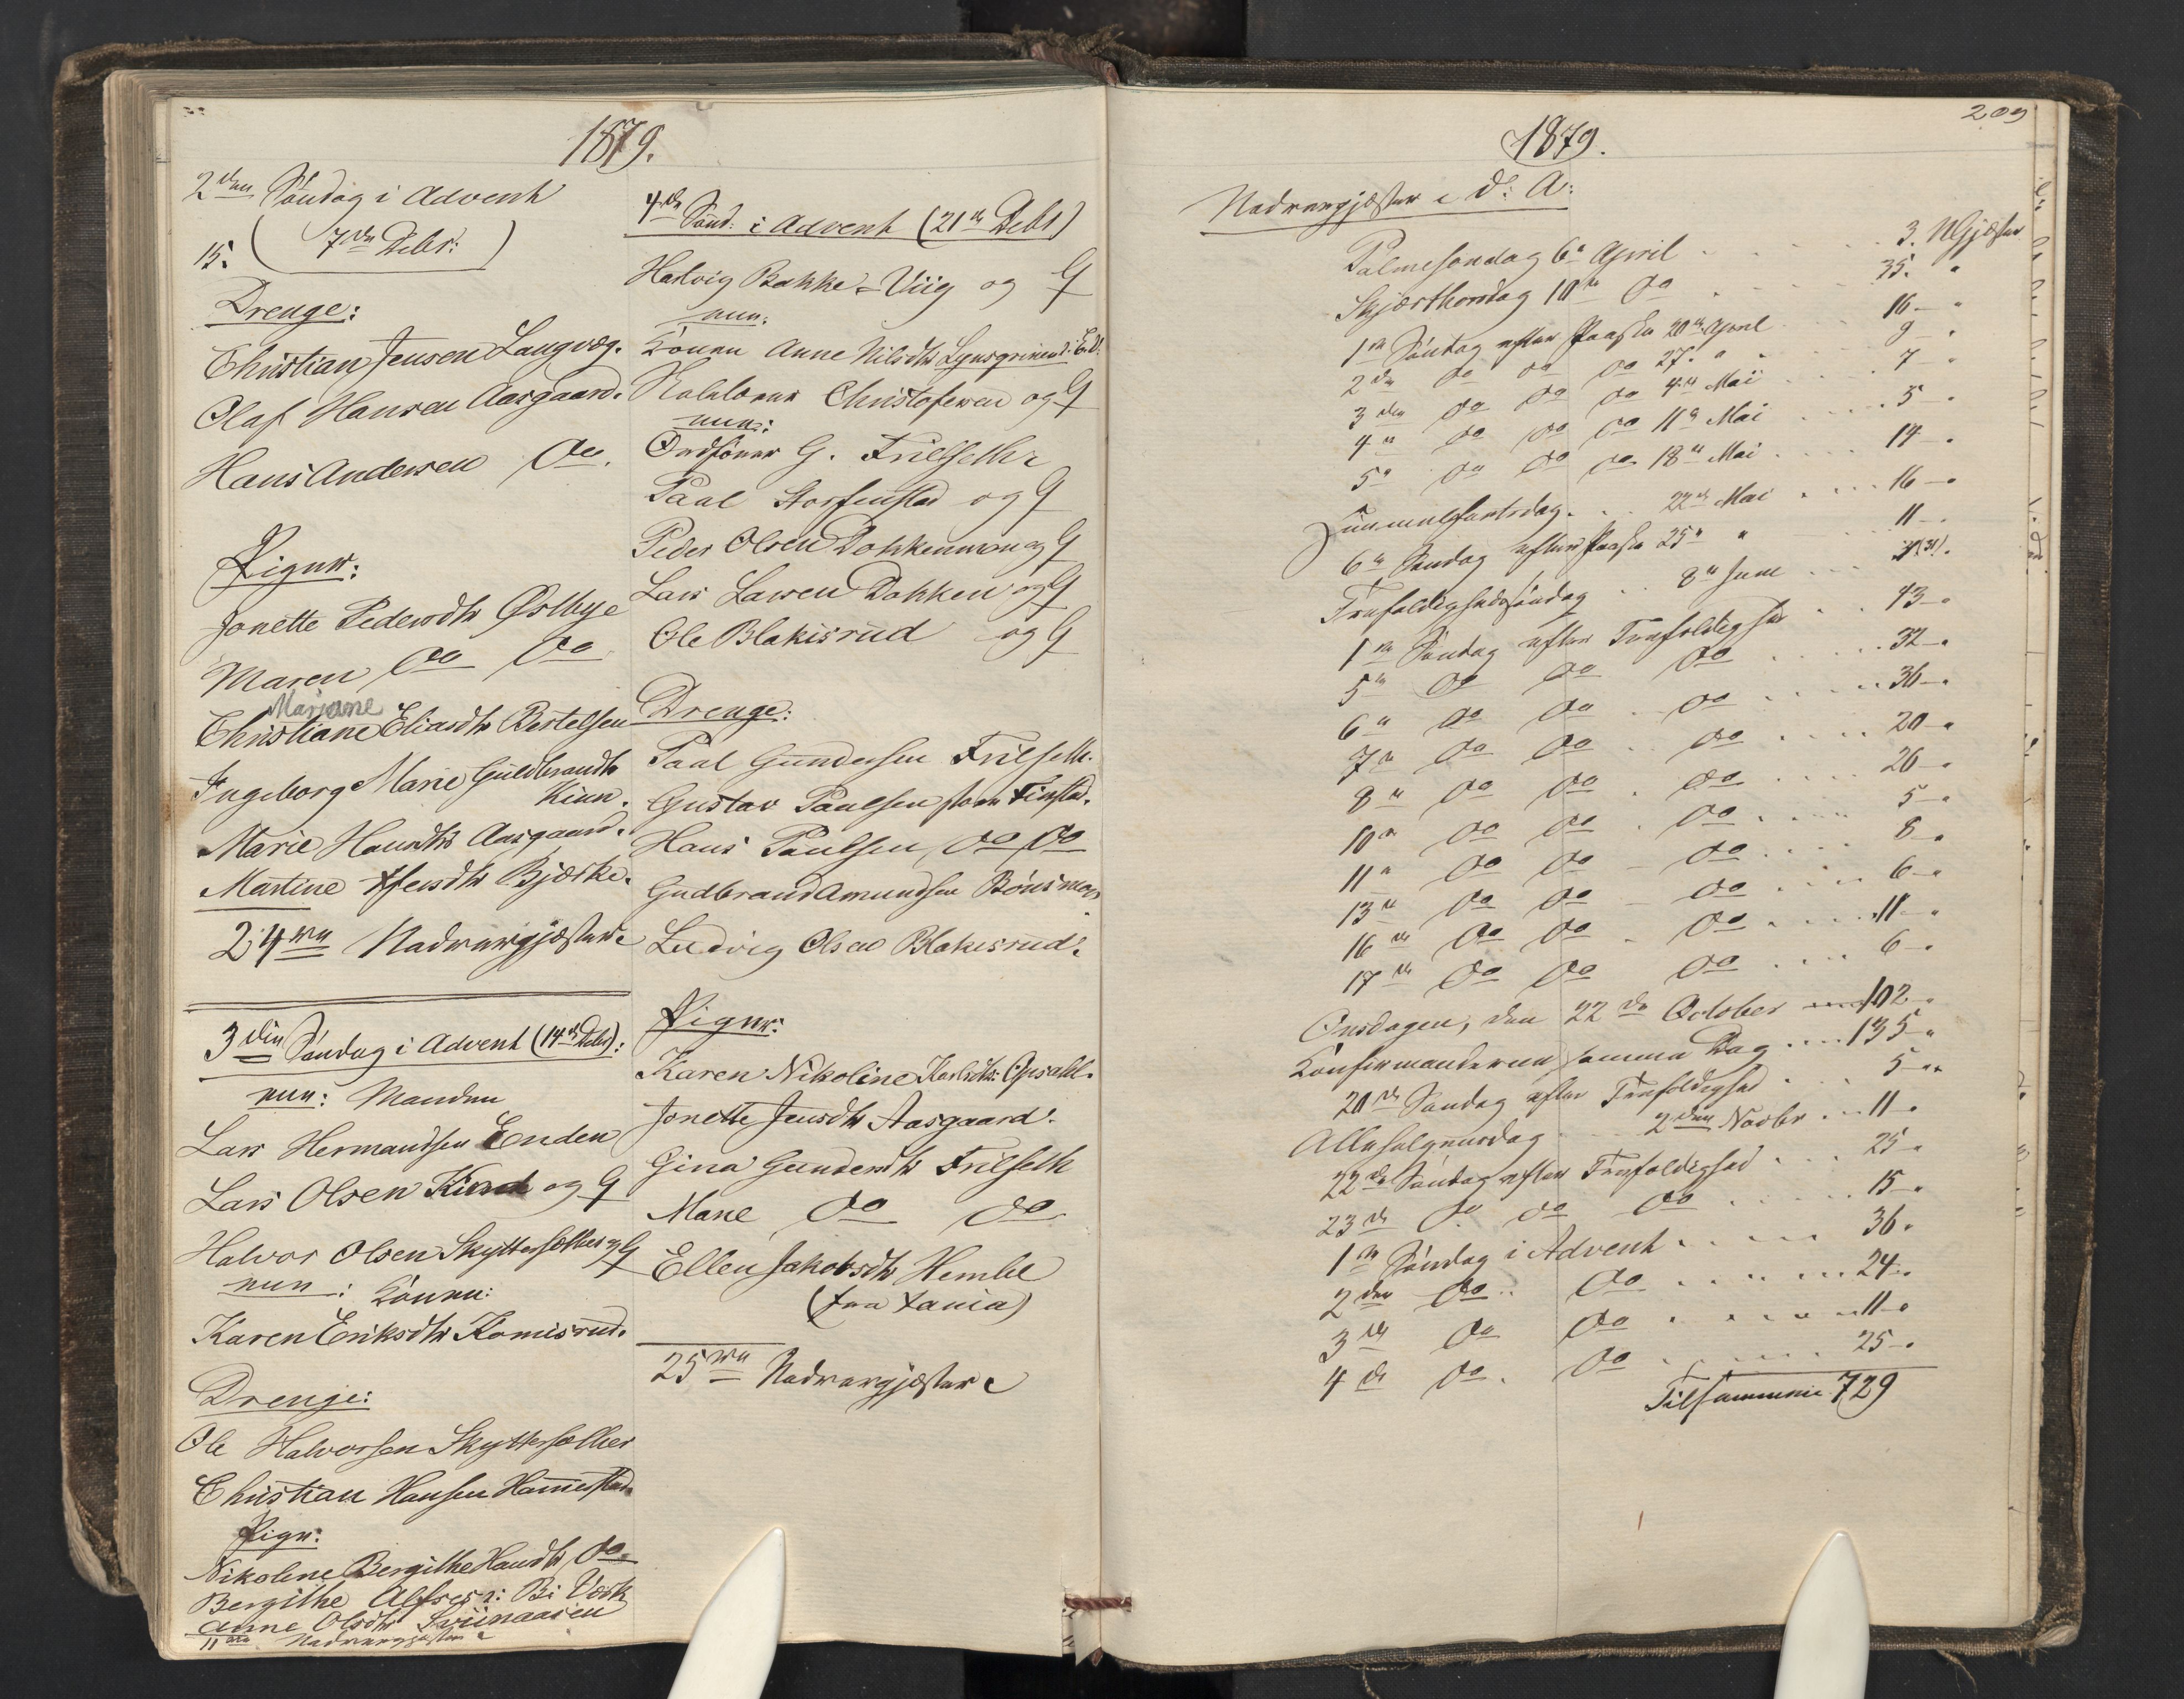 1879.
2den Søndag i Advent
15. (7de Debr:)
Drenge:
Christian Jensen Langvog.
Olaf Hansen Aasgaard.
Hans Andersen do.
Piger:
Jonette Pedersdtr Østbye
Maren do do
Marjane
Christiane Eliasdtr Bertelsen
Ingeborg Marie Guldbrandtr
Kinn.
Marie Hansdtr Aasgaard.
Martine Jensdtr Bjørke.
24re Nadvergjæster
3die Søndag i Advent (14de Debr):
nem: Manden
Lars Hermandsen Enden
Lars Olsen Kind og G
Halvor Olsen Skytterfælles og G
nem: Konen:
Karen Eriksdtr Komisrud.
Drenge:
Ole Halvorsen Skytterfælles
Christian Hansen Hammerstad
Piger:
Nikoline Bergithe Hansdtr do
Bergithe Alfses d: Bi Værk
Anne Olsdtr Sviinaasen
11 Nadvergjæster
4de Sønd: i Advent (21de Debr)
Hartvig Bakke-Viig og G
nem:
Konen Anne Nilsdtr
Christofersen og G
nem:
Ordfører G. Frilseth
Paal Storfinstad og G
Peder Olsen Dokkenmoen og G
Lars Larsen Dokken og G
Ole Blakisrud og G
Drenge:
Paal Gundersen Frilseth.
Gustav Paulsen store Finstad.
Hans Paulsen do do
Gudbrand Amundsen Bønsmoen
Ludvig Olsen Blakisrud.
Piger:
Karen Nikoline Karlsdtr: Opsahl.
Jonette Jensdtr Aasgaard.
Gina Gundersdtr Frilseth
Marie do do
Ellen Jakobsdtr Hemli
(fra Vania)
25re Nadvergjæster
209
1879.
Nadvergjæster i d: A:
Palmesøndag 6te April . . . 3. NGjæster
Skjærthorsdag 10de do . . . 35. "
1ste Søndag efter Paaske 20de April . . 16 - "
2den do do do 27. " . . 9 - "
3die do do do 4de Mai . . 7 - "
4de do do do 11te Mai . . 5 - "
5te do do do 18de Mai . . . 14 - "
Himmelfartsdag . . 22de Mai . . . 16 - "
6te Søndag efter Paaske 25de " 11 - "
Trefoldighedssøndag . . 8de Juni . . . (31).
1ste Søndag efter Trefoldighed . . 43 - "
5te do do do . . . 32 - "
6te do do do . . . 36 - "
7de do do do . . . 20 - "
8de do do do . . . 26 - "
10de do do do . . . 5 - "
11te do do do . . . 8 - "
13de do do do . . . 6 - "
16de do do do . . . 11 - "
17de do do do . . . 6 - "
Onsdagen, den 22de October 102 - "
Konfirmanderne samme Dag . . . 135 "
20de Søndag efter Trefoldighed . . . 5 - "
Allehelgensdag 2den Novbr . . 11 - "
22de Søndag efter Trefoldighed . . . 25 - "
23de do do do . . . 15 - "
1ste Søndag i Advent . . . 36 "
2den do do . . . 24 "
3die do do . . . 11 - "
4de do do . . . 25 - "
Tilsammen 729